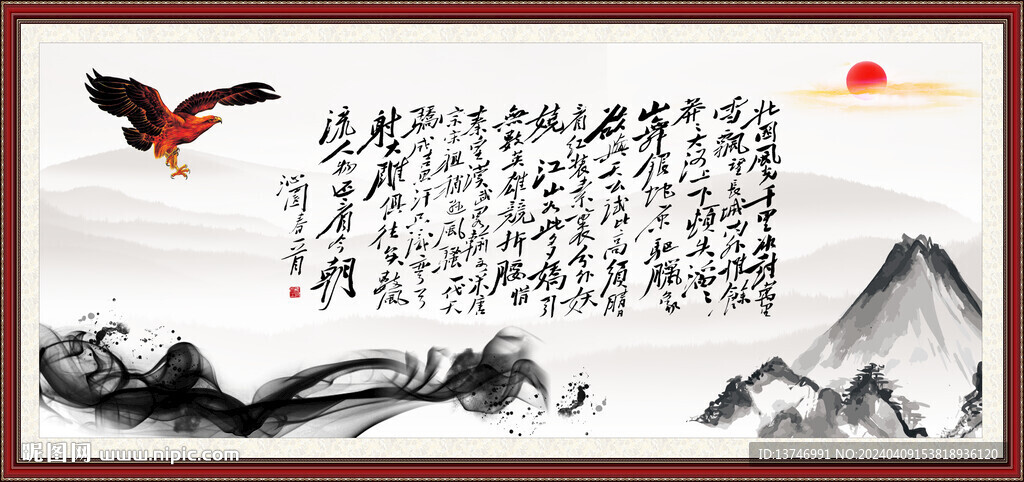 北国風光千里冰封萬里
雪飄望長城内外惟餘
莽〻大河上下頓失滔〻
山舞银蛇原驰臘象
欲與天公試比高須晴日
看红装素裹分外妖
嬈江山如此多嬌引
無數英雄競折腰惜
秦皇漢武略輸文采唐
宗宋祖稍逊風骚一代天
驕成吉思汗只識彎弓
射大雕俱往矣數風
流人物还看今朝
沁园春雪
昵图网 www.nipic.com
ID:13746991 NO:20240409153818936120